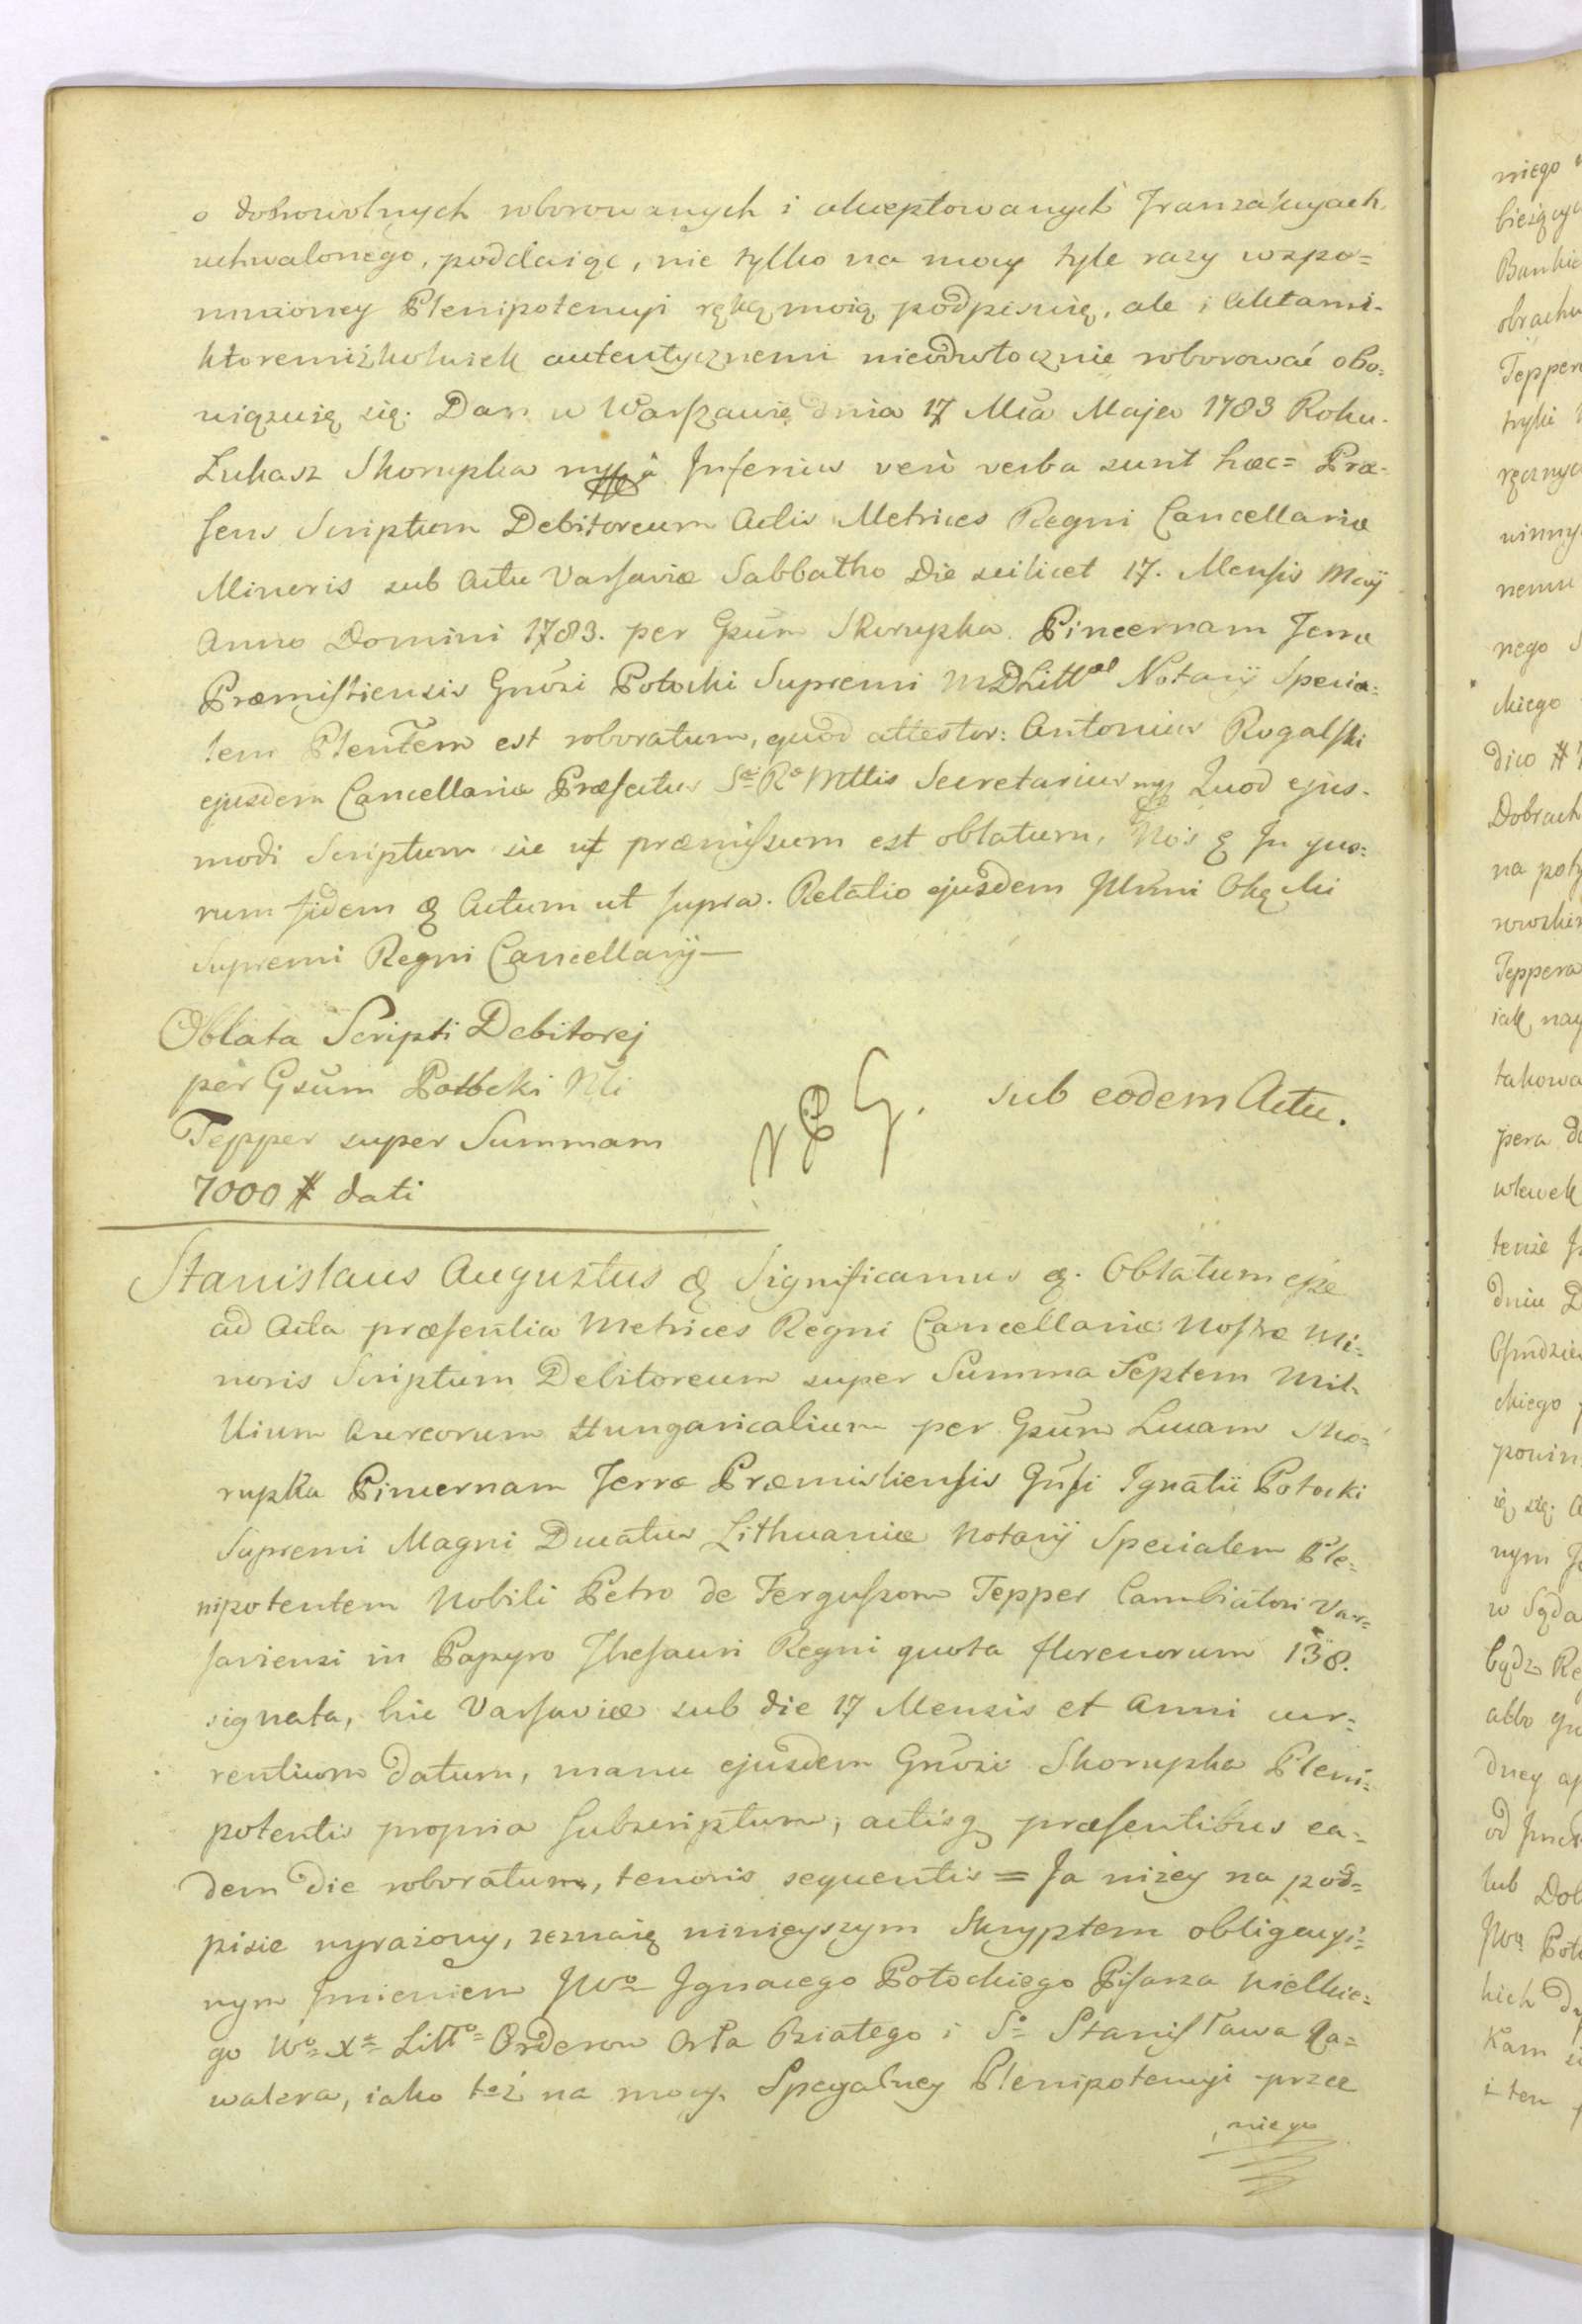 o dobrowolnych roborowanych i akceptowanych Tranzakcyach
uchwalonego, poddaiąc, nie tylko na mocy tyle razy wspo=
mnioney Plenipotencyi ręką moią podpisuię, ale i Aktami
ktoremiżkolwiek autentycznemi nieodwłocznie roborować obo=
wiązuię się. Dan w Warszawie dnia 17 Mca Maja 1783 Roku.
Łukasz Skorupka mpp Inferius verò verba sunt hæc= Præ=
sens Scriptum Debitoreum Actis Metrices Regni Cancellariæ
Minoris sub Actu Varsaviæ Sabbatho Die scilicet 17. Mensis Maÿ
Anno Domini 1783. per Gsum Skorupka Pincernam Terræ
Præmisliensis Gnosi Potocki Supremi MDLitt Notarÿ Specia=
lem Plentem est roboratum, quod attestor: Antonius Rogalski
ejusdem Cancellariæ Præfectus Sæ Ræ Mttis Secretarius mp Quod ejus=
modi Scriptum sic ut præmissum est oblatum, Nos & In quo=
rum fidem & Actum ut supra. Relatio ejusdem Illmi Okęcki
Supremi Regni Cancellarÿ—
Oblata Scripti Debitorej
per Gsum Potocki Nli
Tepper super Summam
7000 # dati
sub eodem Actu.
Stanislaus Augustus & Significamus &. Oblatum eße
ad Acta præsentia Metrices Regni Cancellariæ Nostræ Mi=
noris Scriptum Debitoreum super Summa Septem Mil=
lium Aureorum Hungaricalium per Gsum Lucam Sko=
rupka Pincernam Terræ Præmisliensis Gnsi Ignatii Potocki
Supremi Magni Ducatus Lithuaniæ Notarÿ Specialem Ple=
nipotentem Nobili Petro de Fergusson Tepper Cambiatori Var=
saviensi in Papyro Thesauri Regni quota florenorum 138.
signata, hic Varsaviæ sub die 17 Mensis et Anni cur=
rentium datum, manu ejusdem Gnosi Skorupka Pleni=
potentis propria subscriptum, actisq præsentibus ea=
dem die roboratum, tenoris sequentis = Ja niżey na pod=
pisie wyrażony, zeznaię ninieyszym Skryptem obligacyi=
nym Imieniem JWo Ignacego Potockiego Pisarza Wielkie=
go Wo Xa Litto Orderow Orła Białego i So Stanisława Ka=
walera, iako też na mocy Specyalney Plenipotencyi przez
niego